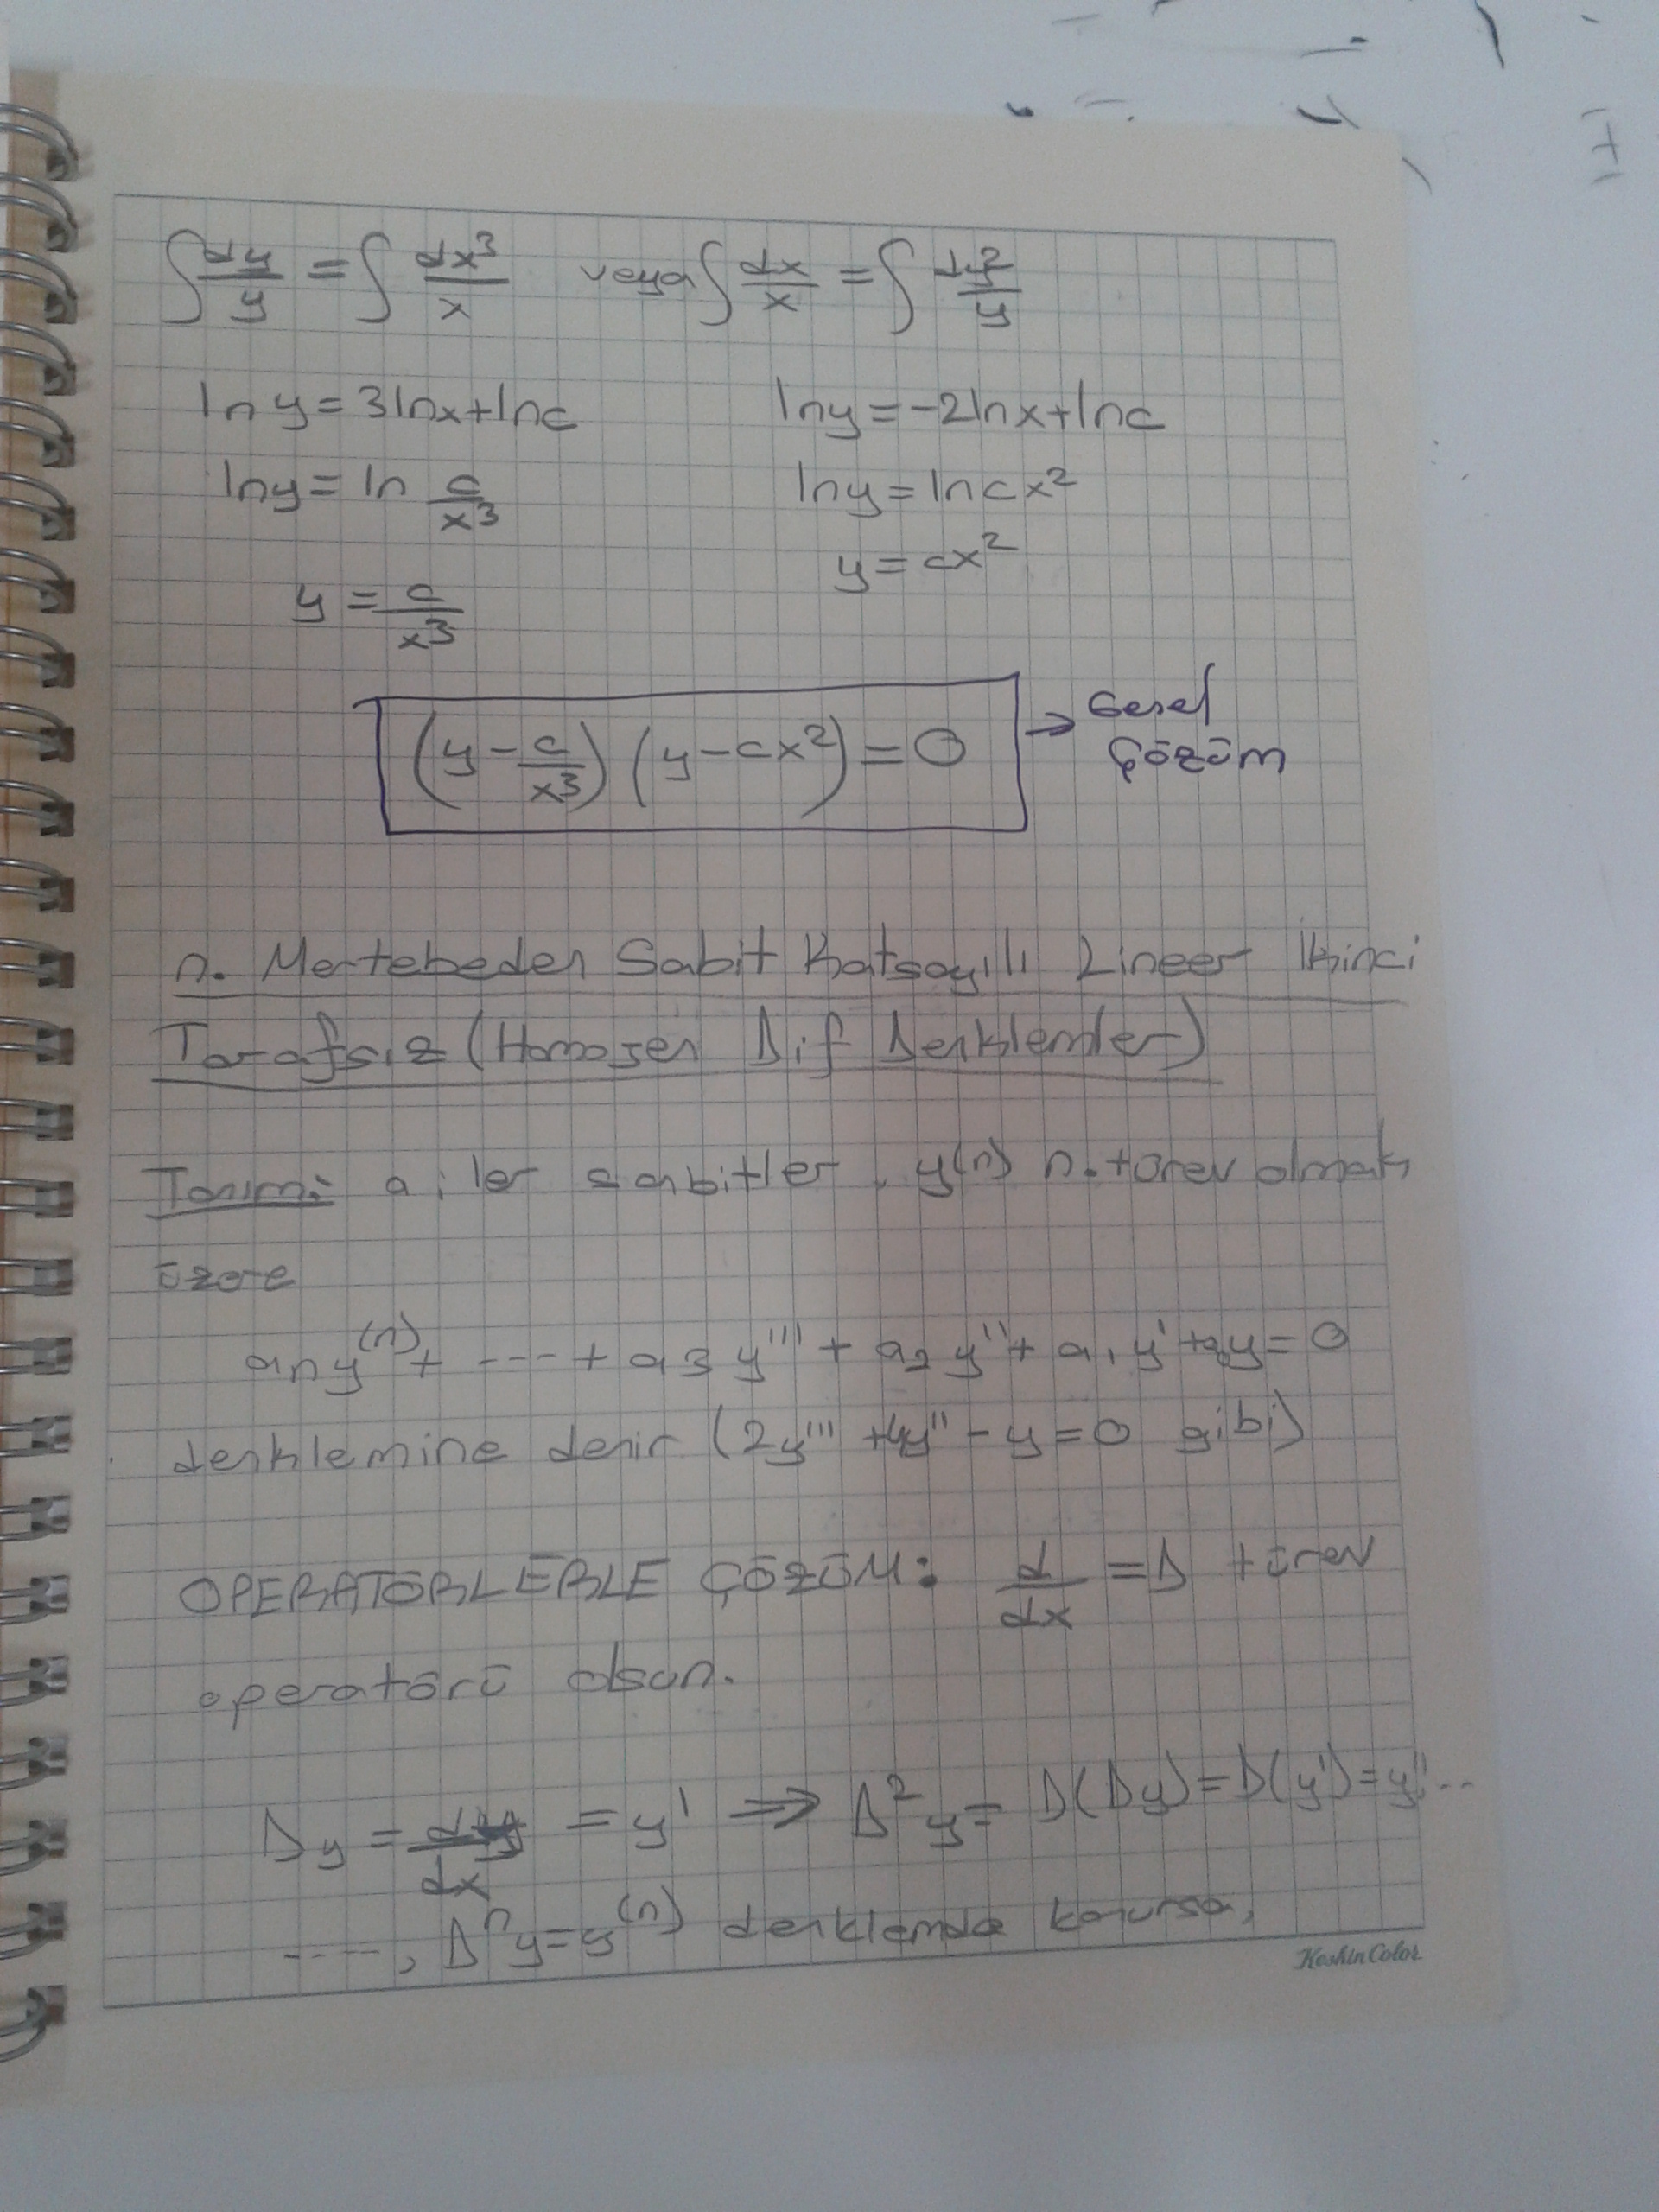 ∫ dy/y = ∫ dx3/x veya ∫ dx/x = ∫ dy2/y
ln y = 3lnx + lnc lny = -2lnx + lnc
lny = ln c/x³ lny = lncx²
y = cx²
y = c/x³
(y - c/x³) (y - cx²) = 0 → Genel
Çözüm
n. Mertebeden Sabit Katsayılı Lineer İkinci
Tarafsız (Homojen Dif Denklemler)
Tanım: a i ler sabitler, y(n) n. türev olmak
üzere
any(n) + ---- + a3 y''' + a2 y'' + a1 y' + a0y = 0
denklemine denir (2y''' + 4y'' - y = 0 gibi)
OPERATÖRLERLE ÇÖZÜM: d/dx = D türev
operatörü olsun.
Dy = dy/dx = y' ⇒ D²y = D(Dy) = D(y') = y''...
----, Dⁿy = y(n) denklemde konursa,
KeskinColor